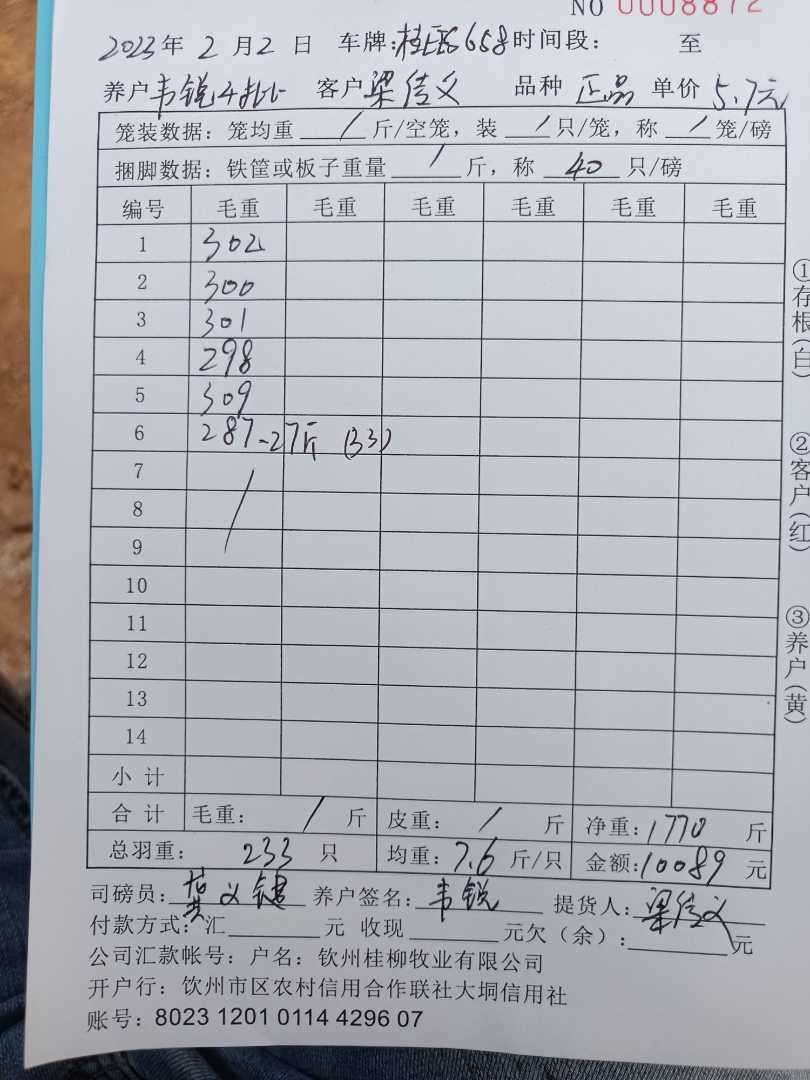 NO 0008872
2023年 2月2日 车牌:桂E 658 时间段: 至
养户韦锐 客户梁信义 品种 正品 单价 5.7元
笼装数据: 笼均重 / 斤/空笼, 装 / 只/笼, 称 / 笼/磅
捆脚数据: 铁筐或板子重量 / 斤, 称 40 只/磅
编号 毛重 毛重 毛重 毛重 毛重 毛重
1 302
2 300
3 301
4 298
5 309
6 287-27斤 (33)
7
8
9
10
11
12
13
14
小计
合计 毛重: / 斤 皮重: / 斤 净重:1770 斤
总羽重: 233 只 均重:7.6 斤/只 金额:10089 元
司磅员: 养户签名: 韦锐 提货人: 梁信义
付款方式: 汇 元 收现 元欠(余): 元
公司汇款帐号: 户名: 钦州桂柳牧业有限公司
开户行: 钦州市区农村信用合作联社大垌信用社
账号: 8023 1201 0114 4296 07
①存根(白)
②客户(红)
③养户(黄)